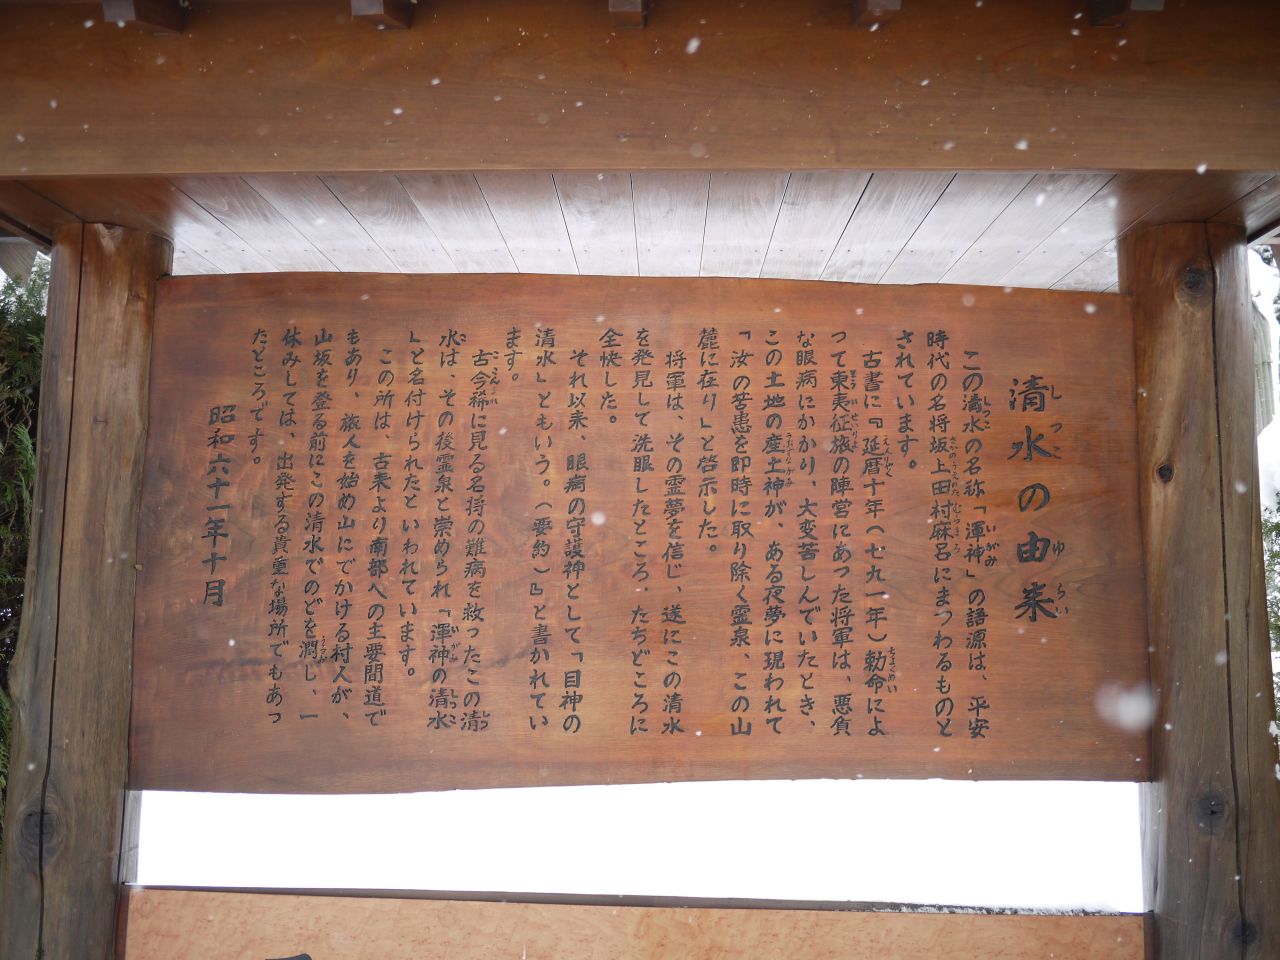 清水の由来
この清水の名称「渾神」の語源は、平安
時代の名将坂上田村麻呂にまつわるものと
されています。
古書に『延暦十年(七九一年)勅命によ
って東夷征旅の陣営にあった将軍は、悪質
な眼病にかかり、大変苦しんでいたとき、
この土地の産土神が、ある夜夢に現われて
「汝の苦患を即時に取り除く霊泉、この山
麓に在り」と啓示した。
将軍は、その霊夢を信じ、遂にこの清水
を発見して洗眼したところ、たちどころに
全快した。
それ以来、眼病の守護神として「目神の
清水」ともいう。(要約)』と書かれてい
ます。
古今稀に見る名将の難病を救ったこの清
水は、その後霊泉と崇められ「渾神の清水
」と名付けられたといわれています。
この所は、古来より南部への主要間道で
もあり、旅人を始め山にでかける村人が、
山坂を登る前にこの清水でのどを潤し、一
休みしては、出発する貴重な場所でもあっ
たところです。
昭和六十一年十月